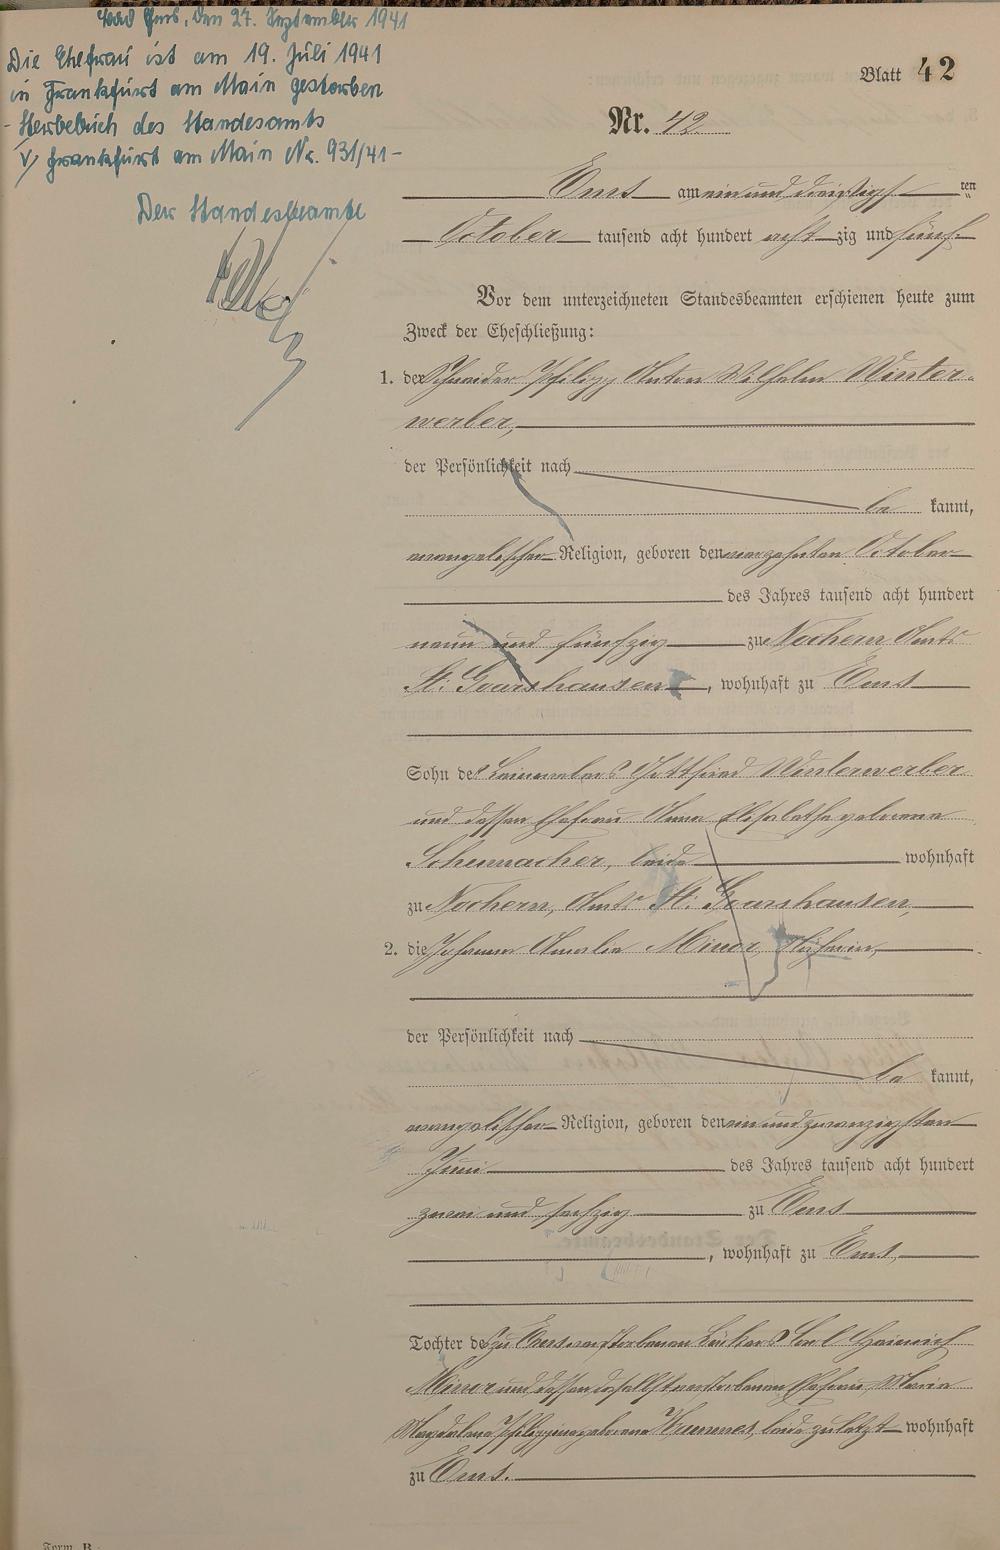 Bad Ems, den 27. September 1941
Die Ehefrau ist am 19. Juli 1941
in Frankfurt am Main gestorben
- Sterbebuch des Standesamts
V, Frankfurt am Main Nr. 931/41 -
Der Standesbeamte
Blatt 42
Nr. 42
Ems am ein und dreißigsten
October tausend acht hundert acht zig und fünf
Vor dem unterzeichneten Standesbeamten erschienen heute zum
Zweck der Eheschließung:
1. der Schneider Philipp Anton Wilhelm Winter-
werber,
der Persönlichkeit nach
be kannt,
evangelischer Religion, geboren den vierzehnten October
des Jahres tausend acht hundert
neun und fünfzig zu Nochern, Amts
St: Goarshausen, wohnhaft zu Ems
Sohn des Leinwebers Gottfried Winterwerber
und dessen Ehefrau Anna Elisabetha geborene
Schumacher, beide wohnhaft
zu Nochern, Amts St: Goarshausen,
2. die Johanna Amalia Minor,
der Persönlichkeit nach
be kannt,
evangelischer Religion, geboren den ein und zwanzigsten
Juni des Jahres tausend acht hundert
zwei und sechzig zu Ems
, wohnhaft zu Ems,
Tochter des zu Ems verstorbenen Bäckers Carl Heinrich
Minor und dessen daselbst verstorbenen Ehefrau, Maria
Magdalena Philippina geborene beide zuletzt wohnhaft
zu Ems.
Form. B.